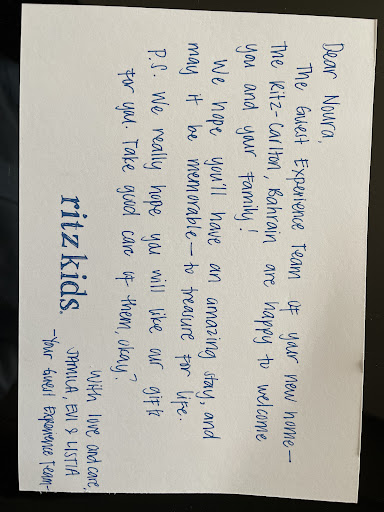 Dear Noura,
The Guest Experience Team of your new home—
The Ritz-Carlton, Bahrain are happy to welcome
you and your family!
We hope you'll have an amazing stay, and
may it be memorable— to treasure for life.
P.S. We really hope you will like our gift
for you. Take good care of them, okay?
ritzkids.
With love and care,
JAMILA, EVI & LISTIA
-Your Guest Experience Team-